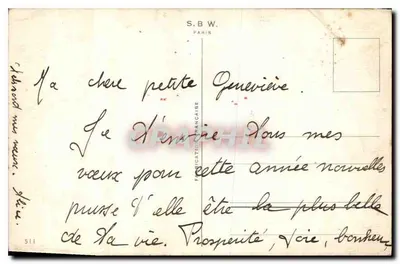 S.B.W.
PARIS
Ma chere petite Geneviève.
Je t'envoie tous mes
vœux pour cette année nouvelles
puisse t'elle être la plus belle
de ta vie. Prosperité, Joie, bonheur
FABRICATION FRANÇAISE
511